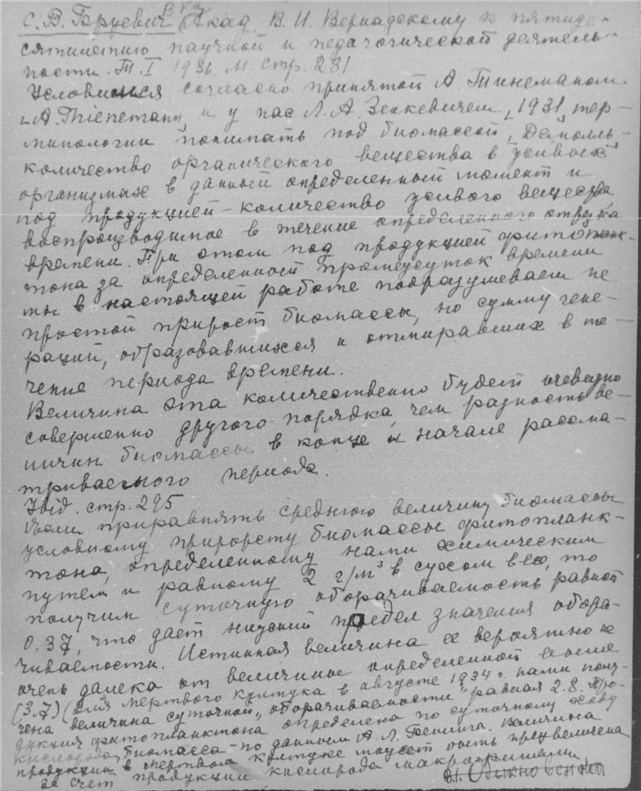 С. В. Бруевич В кн. Акад. В. И. Вернадскому к пятиде-
сятилетию научной и педагогической деятель-
ности. Т. I 1936. М. стр. 281
Условимся согласно принятой А. Тинеманом
А. Thienemann, и у нас Л. А. Зенкевичем, 1931, тер-
минологии понимать под биомассой,
количество органического вещества в живых
организмах в данный определенный момент и
под продукцией – количество живого вещества
воспроизводимое в течение определенного отрезка
времени. При этом под продукцией фитопланк-
тона за определенный промежуток времени
мы в настоящей работе подразумеваем не
простой прирост биомассы, но сумму гене-
раций, образовавшихся и отмиравших в те-
чение периода времени.
Величина эта количественно будет очевидно
совершенно другого порядка, чем разность ве-
личин биомассы в конце и начале рассма-
триваемого периода.
Ibid. стр. 295
Если приравнять среднюю величину биомассы
условному приросту биомассы фитопланк-
тона, определенному нами химическим
путем и равному 2 г/м³ в сухом весе, то
получим суточную оборачиваемость равной
0.37, что дает низший предел значения обора-
чиваемости. Истинная величина ее вероятно не
очень далека от величины определенной
(3.7) (для Мертвого Култука в августе 1934 г. нами полу-
чена величина суточной „оборачиваемости", равная 2.8. Про-
дукция фитопланктона определена по суточному ходу
кислорода, биомасса – по данным А. Л. Бенинга. Величина
продукции в Мертвом Култуке может быть преувеличена
за счет продукции кислорода макрофитами